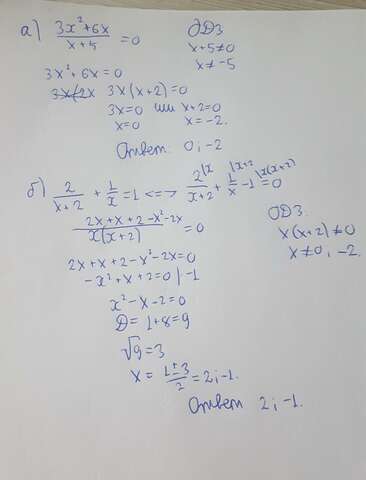 а) (3x²+6x)/(x+5) = 0
ОДЗ
x+5≠0
x≠-5
3x²+6x=0
3x(x+2)=0
3x=0 или x+2=0
x=0 x=-2.
Ответ: 0; -2
б) 2/(x+2) + 1/x = 1 <=> 2\x/(x+2) + 1\x+2/x - 1\x(x+2) = 0
(2x+x+2-x²-2x)/(x(x+2)) = 0
ОДЗ.
x(x+2)≠0
x≠0; -2.
2x+x+2-x²-2x=0
-x²+x+2=0 | -1
x²-x-2=0
D=1+8=9
√9=3
x = (1±3)/2 = 2; -1.
Ответ 2; -1.